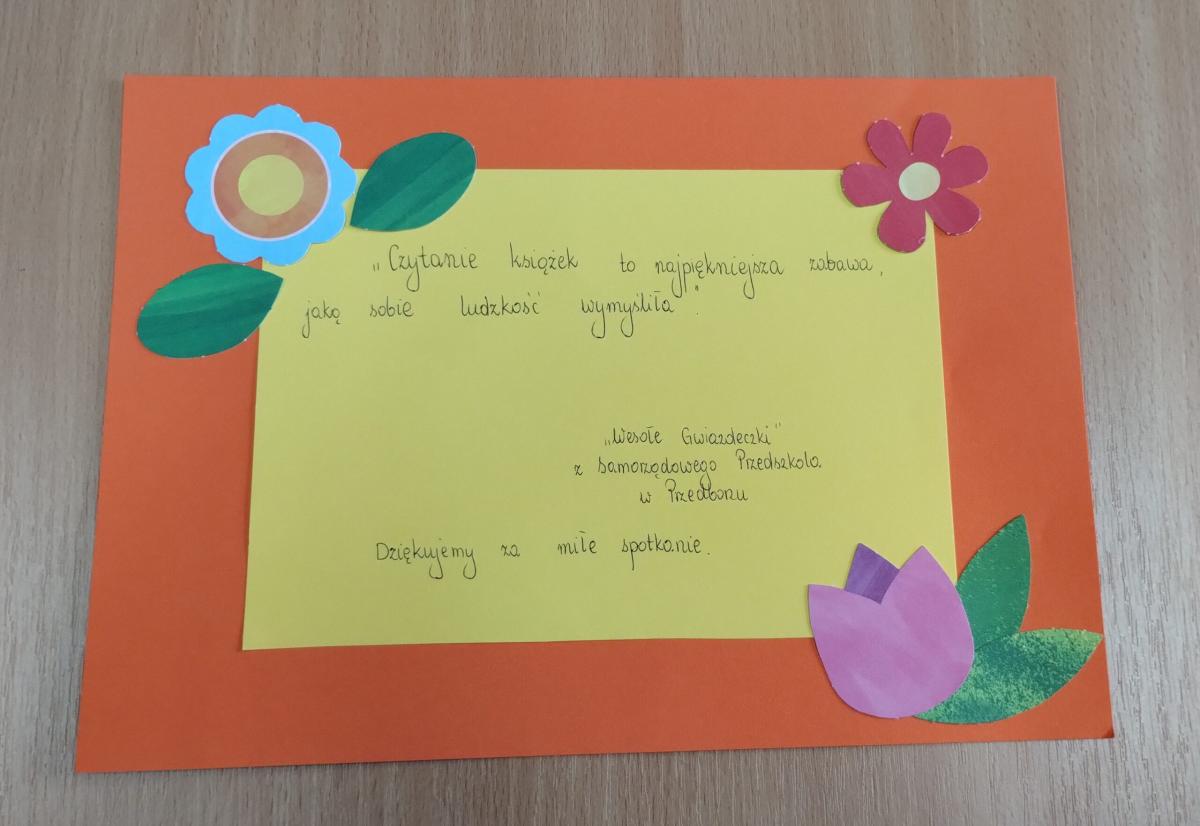 „Czytanie książek to najpiękniejsza zabawa,
jaką sobie ludzkość wymyśliła".
„Wesołe Gwiazdeczki"
z Samorządowego Przedszkola
w Przedborzu
Dziękujemy za miłe spotkanie.